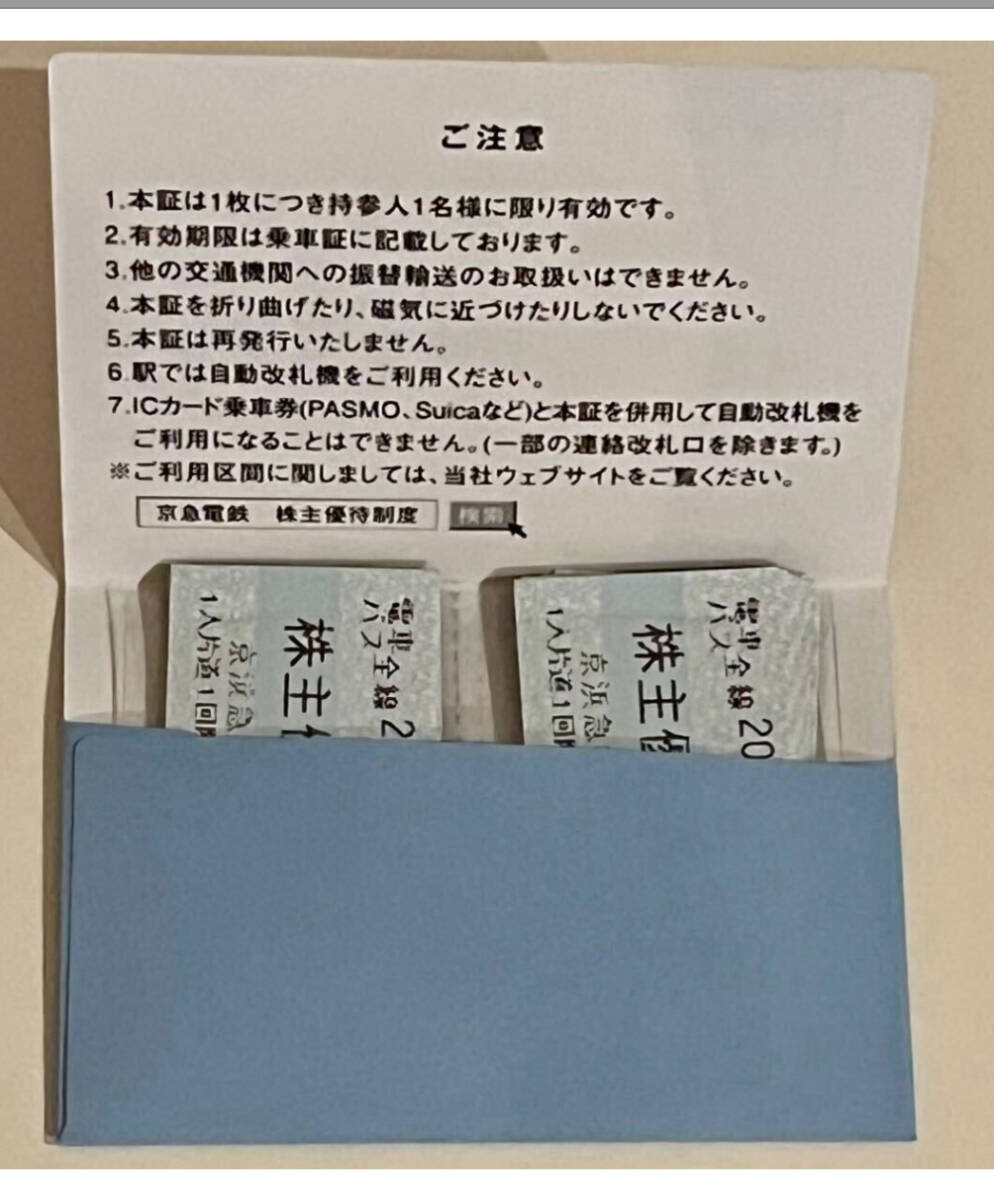 ご注意
1.本証は1枚につき持参人1名様に限り有効です。
2.有効期限は乗車証に記載しております。
3.他の交通機関への振替輸送のお取扱いはできません。
4.本証を折り曲げたり、磁気に近づけたりしないでください。
5.本証は再発行いたしません。
6.駅では自動改札機をご利用ください。
7.ICカード乗車券(PASMO、Suicaなど)と本証を併用して自動改札機を
ご利用になることはできません。(一部の連絡改札口を除きます。)
※ご利用区間に関しましては、当社ウェブサイトをご覧ください。
京急電鉄 株主優待制度 検索
電車全線 2
バス
株主
京浜急
1人片道1回
電車全線 20
バス
株主優
京浜急
1人片道1回